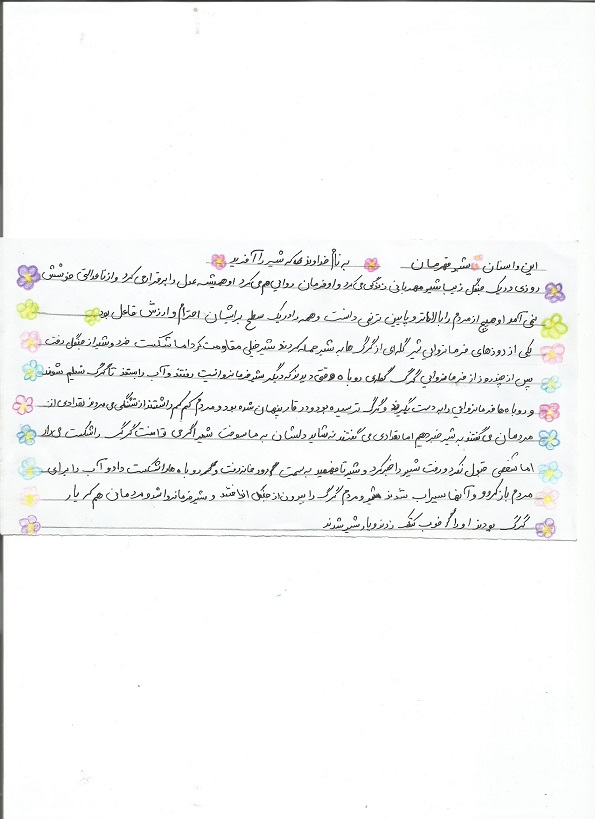 به نام خداوندی که شیر را آفرید
این داستان شیر قهرمان
روزی در یک جنگل زیبا شیر مهربانی زندگی می کرد و او فرمان روایی هم می کرد او همیشه عدل را برقرار می کرد و از ناعدالتی خوشش
نمی آمد او هیچ از مردم را بالاتر و پایین تر نمی دانست و همه را در یک سطح برایشان احترام و ارزش قاعل بود
یکی از روزهای فرمانروایی شیر گله ای از گرگ ها به شیر حمله کردند شیر خیلی مقاومت کرد اما شکست خورد و شیر از جنگل رفت
پس از چند روز از فرمانروایی گرگ گله ی روباه وقتی دیدند که دیگر شیر فرمانروا نیست رفتند و آب را بستند تا گرگ تسلیم شوند
و روباه ها فرمانروایی را به دست بگیرند و گرگ ترسیده بود و در غار پنهان شده بود و مردم کم کم داشتند از تشنگی می مردند تعدادی از
مردمان می گفتند به شیر خبر دهیم اما تعدادی می گفتند نه شاید دلشان به ما سوخت شیر اگر می توانست گرگ را شکست می داد
اما شخصی قبول نکرد و رفت شیر را خبر کرد و شیر تا فهمید به سمت رفت و روباه ها را شکست داد و آب را برای
مردم باز کرد و آنها سیراب شدند شیر و مردم گرگ را بیرون از جنگل انداختند و شیر فرمانروا شد و مردمان هم که یار
گرگ بودند او را خوب کتک زدند و یار شیر شدند